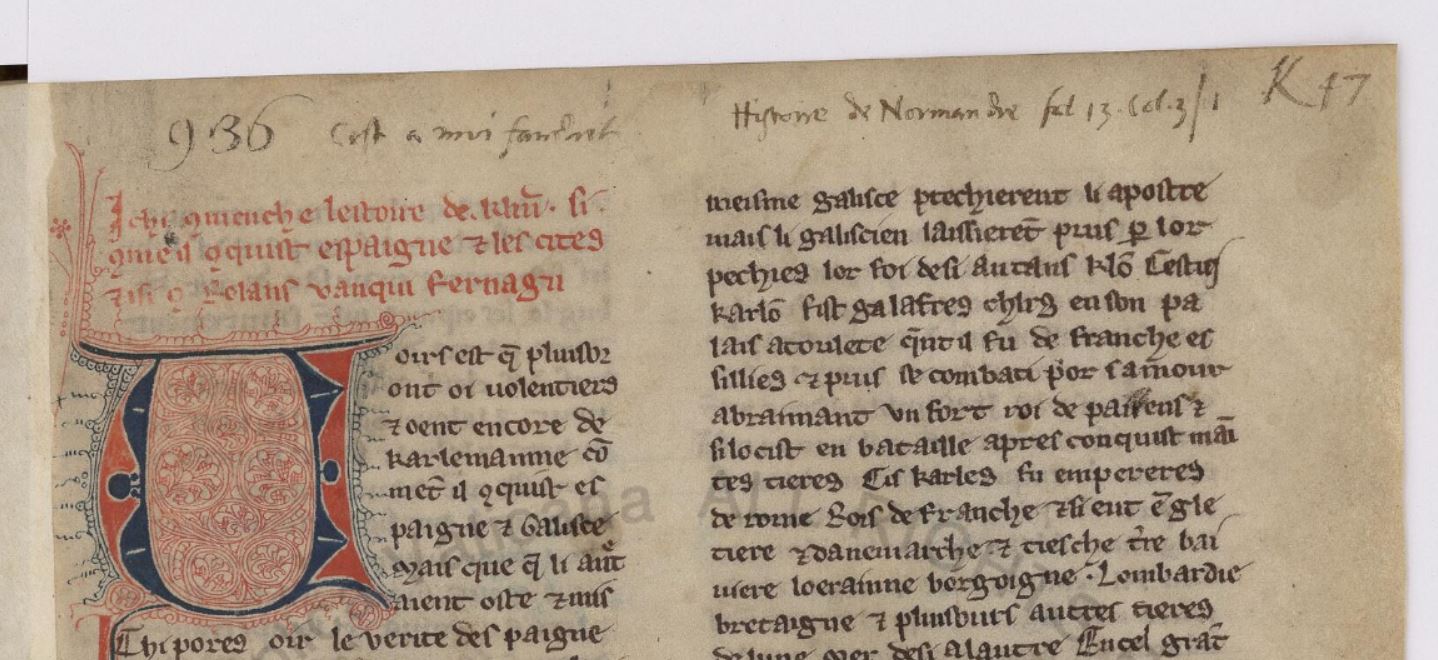 936 Cest a moi fauchet
Histoire de Normandie fol 13. Col. 3/1
K 17
Ichi 9menche lestoire de. klm̄. si
9me il 9quist espaigne ⁊ les cites
⁊ isi 9 Rolans vanqui Fernagu
Voirs est q̄ pluisor
ont oi uolentiers
⁊ oent encore de
karlemainne cō
met̄ il 9quist es
paigne ⁊ Galisce
Mais que q̄ li aut͛
aient oste ⁊ mis
Chi pores oir le verite despaigne
meisme galisce prechierent li apostre
mais li galiscien laissierēt prius ꝑ lor
pechies lor foi desi au tans klō Cestui
karlō fist galafres chlrs en son pa
lais a toulete q̄nt il fu de franche es
sillies ⁊ prius se combati por samour
a braimant vn fort roi de paiiens ⁊
si locist en bataille apres conquist māi
tes tieres Cis karles fu empereres
de rome Rois de Franche ⁊ si eut ēgle
tiere ⁊ danemarche ⁊ tiesche t̄re bai
uiere loerainne borgoigne. Lombardie
bretaigne ⁊ pluisours autres tieres
de lune mer desi alautre Encel